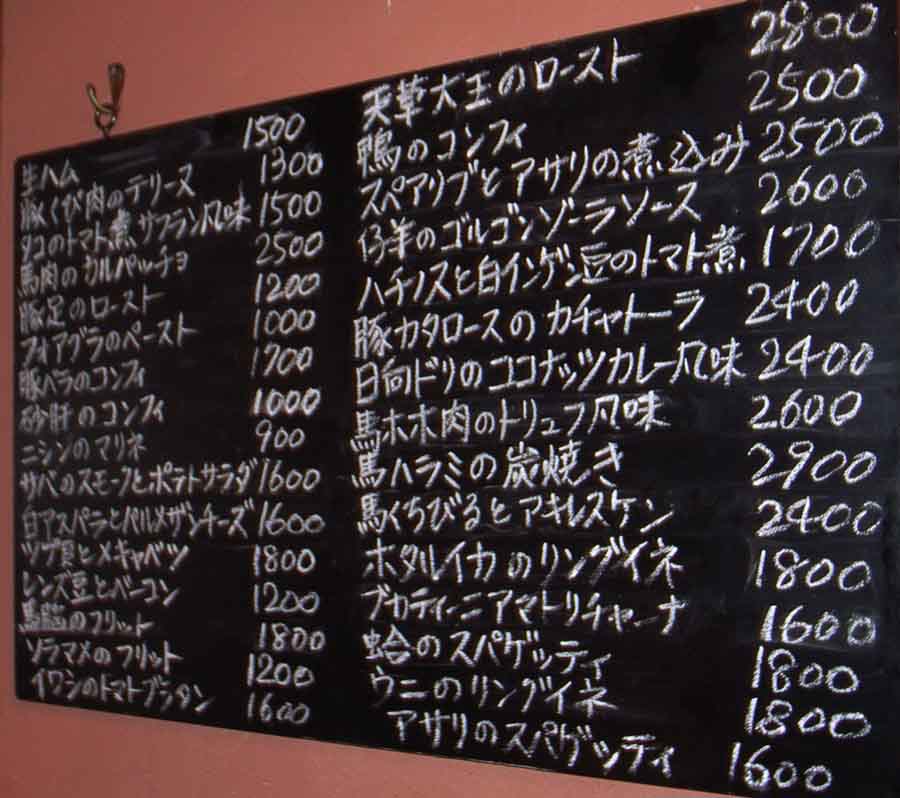 生ハム 1500
豚くび肉のテリーヌ 1300
タコのトマト煮サフラン風味 1500
馬肉のカルパッチョ 2500
豚足のロースト 1200
フォアグラのペースト 1000
豚ベラのコンフィ 1700
砂肝のコンフィ 1000
ニシンのマリネ 900
サバのスモークとポテトサラダ 1600
白アスパラとパルメザンチーズ 1600
ツブ貝とメキャベツ 1800
レンズ豆とベーコン 1200
馬脳のフリット 1800
ソラマメのフリット 1200
イワシのトマトグラタン 1600
天草大王のロースト 2800
鴨のコンフィ 2500
スペアリブとアサリの煮込み 2500
仔羊のゴルゴンゾーラソース 2600
ハチノスと白インゲン豆のトマト煮 1700
豚カタロースのカチャトーラ 2400
日向ドリのココナッツカレー風味 2400
馬ホホ肉のトリュフ風味 2600
馬ハラミの炭焼き 2900
馬くちびるとアキレスケン 2400
ホタルイカのリングイネ 1800
ブカティーニアマトリチャーナ 1600
蛤のスパゲッティ 1800
ウニのリングイネ 1800
アサリのスパゲッティ 1600